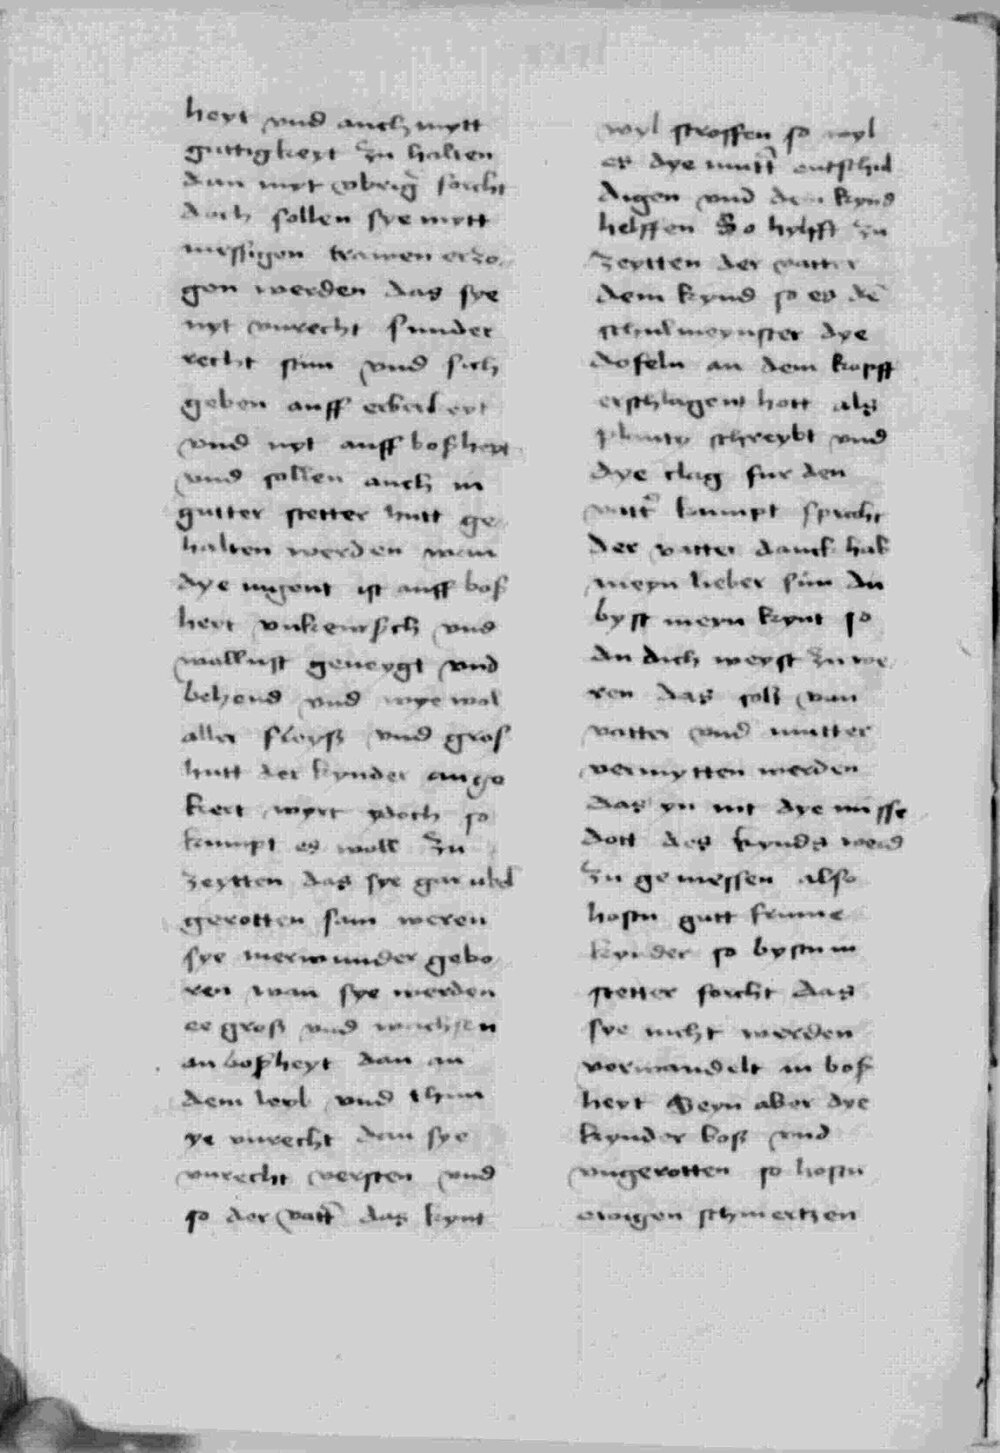 heyt vnd auch mytt
guttigkeyt zu halten
dan myt vbrig̃ forcht
doch sollen sye mytt
messigen trawen erzo
gen werden das sye
nyt vnrecht sunder
recht stun vnd sich
geben auff erberkeyt
vnd nyt auff boßheyt
vnd sollen auch in
gutter stetter hutt ge
halten werden wan
dye iugent ist auff boß
heyt vnkeuwsch vnd
wollust geneygt vnd
behend vnd wye wol
aller fleyß vnd groß
hutt der kynder ange
kert wyrt ydoch so
kumpt es woll zu
zeytten das sye gar ubel
gerotten sam weren
sye merwunder gebo
ren wan sye werden
ee groß vnd wachsen
an boßheyt dan an
dem leyb vnd thun
ye vnrecht dan sye
vnrecht versten vnd
so der vatt̃ das kynt
wyl stroffen so wyl
es dye mutt̃ entschul
digen vnd dem kynd
helffen So hylfft zu
zeytten der vatter
dem kynd so es dē
schulmeynster dye
dofeln an dem kopff
erschlagen hott als
plauty schreybt vnd
dye clag fur den
vatt̃ kumpt spricht
der vatter danck hab
meyn lieber sun du
byst meyn kynt so
du dich weyst zu we
ren das soll van
vatter vnd mutter
vermytten werden
das yn nit dye misse
dott des kynds werd
zu gemessen also
hostu gutt frume
kynder so bystu in
stetter forcht das
sye nicht werden
verwandelt in boß
heyt Seyn aber dye
kynder boß vnd
vngerotten so hostu
ewigen schmertzen